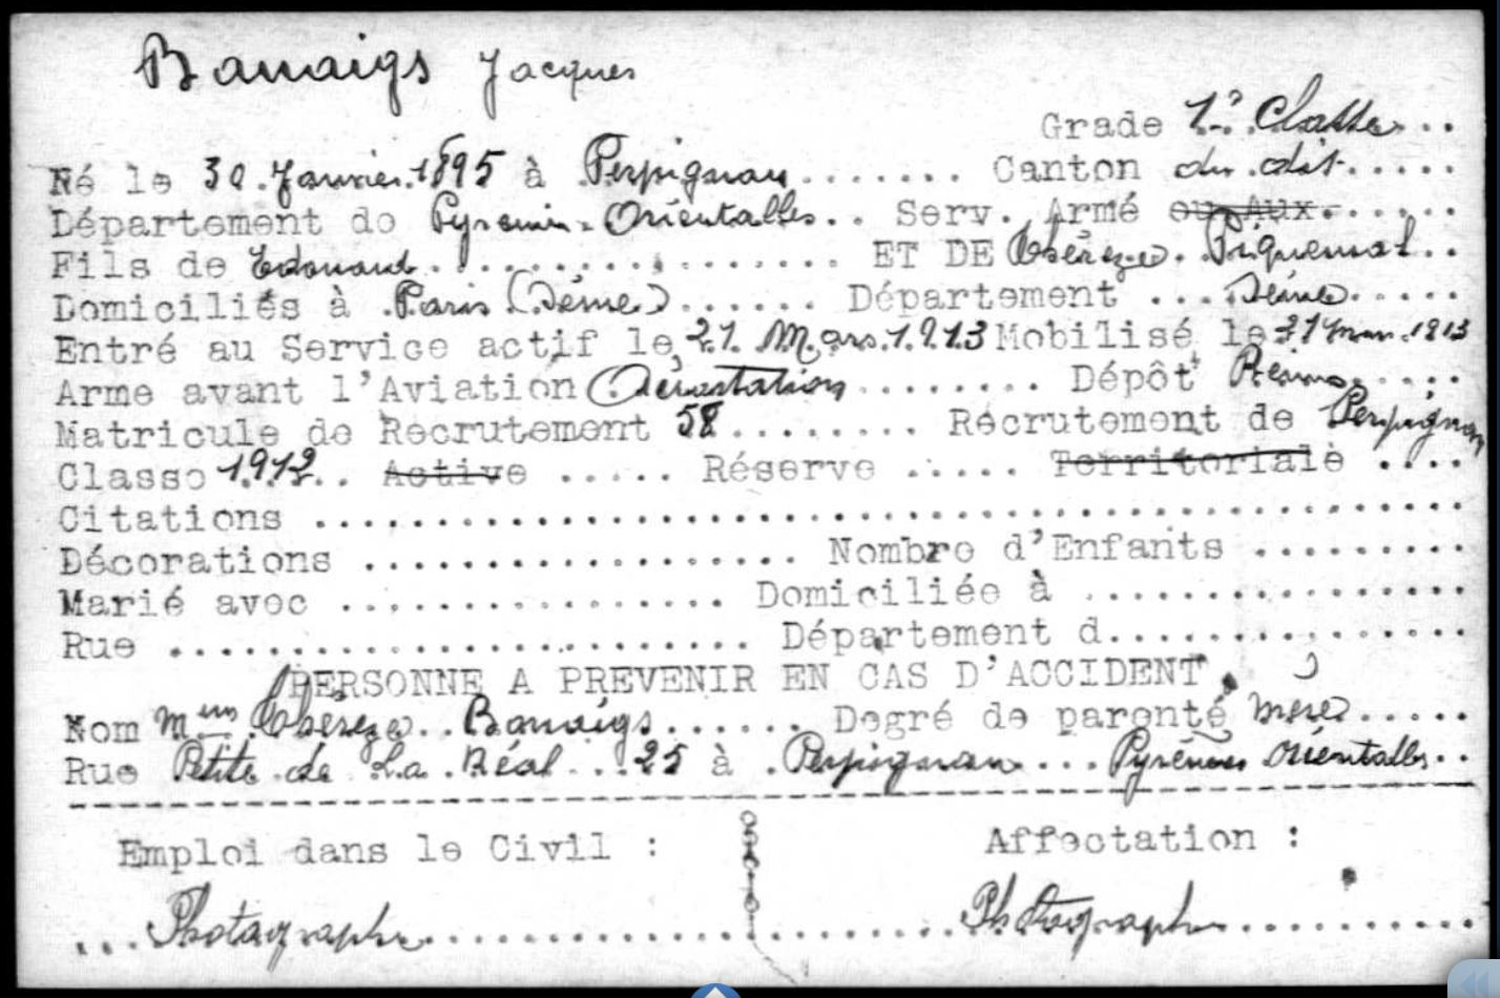 Banaigs Jacques
Grade 1e Classe
Né le 30 Janvier 1895 à Perpignan Canton du dit
Département de Pyrenin-Orientalles Serv. Armé ou Aux.
Fils de Edouard ET DE Thérèze Piquemal
Domiciliés à Paris (Séme) Département Seine
Entré au Service actif le 21 Mars 1913 Mobilisé le 21 Mars 1913
Arme avant l'Aviation Aérostation Dépôt Reims
Matricule de Recrutement 58 Recrutement de Perpignan
Classe 1912 Active Réserve Territoriale
Citations
Décorations Nombre d'Enfants
Marié avec Domiciliée à
Rue Département d
PERSONNE A PREVENIR EN CAS D'ACCIDENT
Nom Mme Thérèze Banaigs Degré de parenté mère
Rue Petite de La Réal 25 à Perpignan Pyrénées Orientalles
Emploi dans le Civil : Affectation :
Photographe Photographe